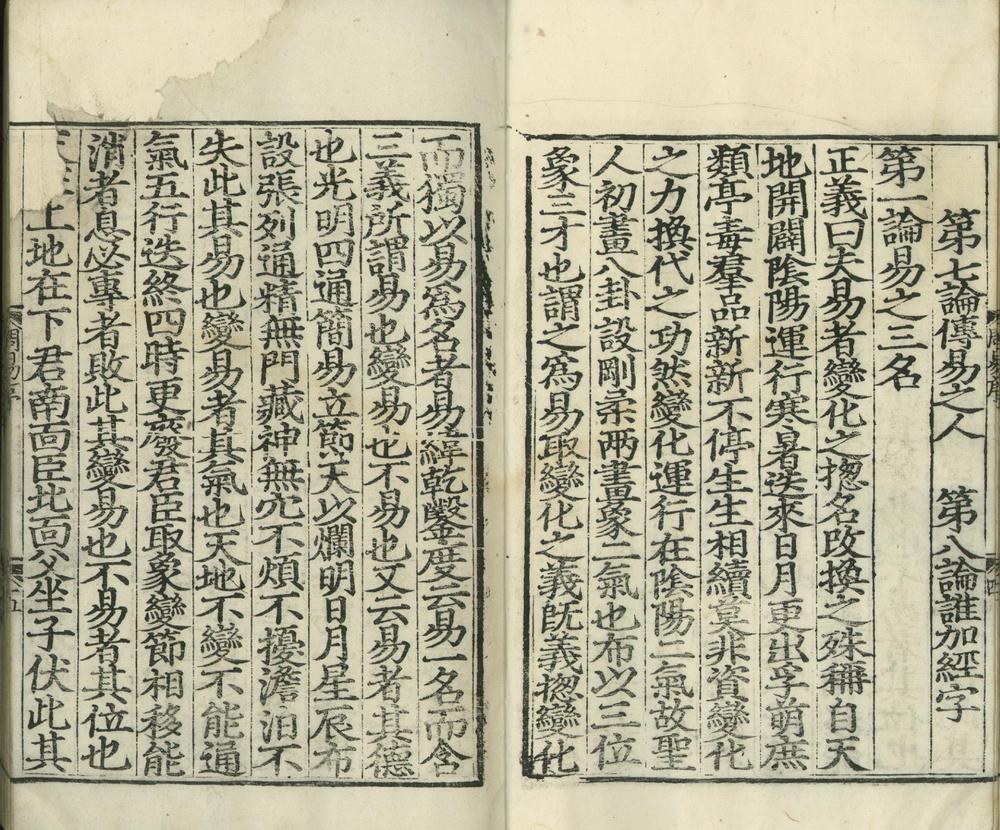 第七論傳易之人 第八論誰加經字
第一論易之三名
正義曰夫易者變化之揔名改換之殊稱自天
地開闢陰陽運行寒暑迭來日月更出孚萌庶
類亭毒羣品新新不停生生相續莫非資變化
之力換代之功然變化運行在陰陽二氣故聖
人初畫八卦設剛柔兩畫象二氣也布以三位
象三才也謂之爲易取變化之義旣義揔變化
而獨以易爲名者易緯乾鑿度云易一名而含
三義所謂易也變易也不易也又云易者其德
也光明四通簡易立節天以爛明日月星辰布
設張列通精無門藏神無穴不煩不擾澹泊不
失此其易也變易者其氣也天地不變不能通
氣五行迭終四時更廢君臣取象變節相移能
消者息必專者敗此其變易也不易者其位也
上地在下君南面臣北面父坐子伏此其